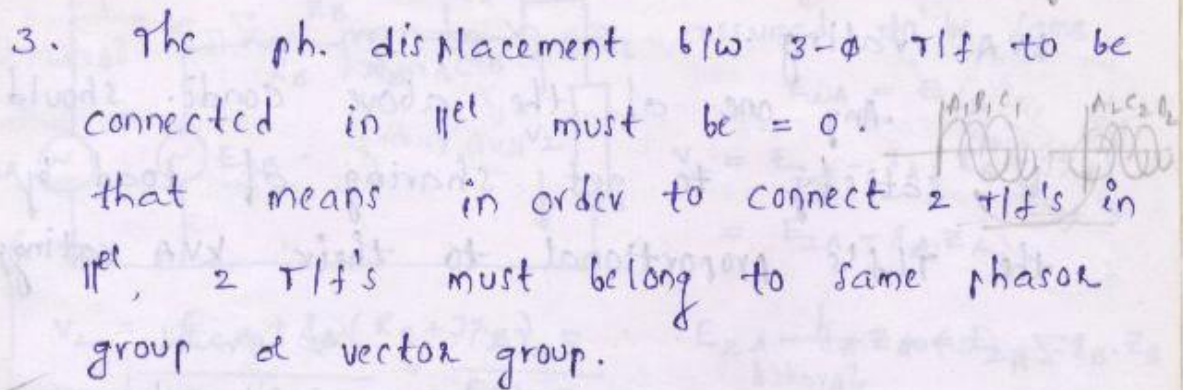 3. The ph. displacement b/w 3-ϕ T/f to be
connected in ||el must be = 0. A1 B1 C1 A2 C2 B2
that means in order to connect 2 T/f's in
||el, 2 T/f's must belong to same phasor
group or vector group.